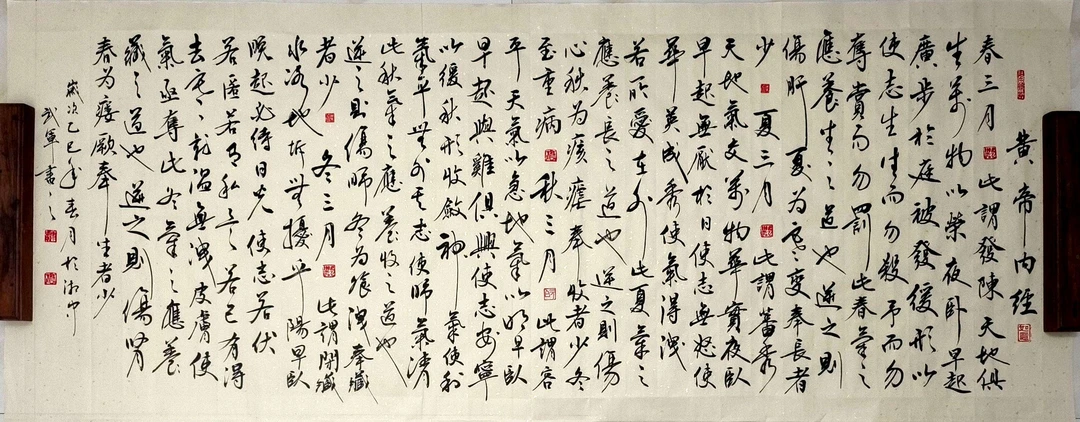 黄帝内经
春三月此謂發陳天地俱
生萬物以榮夜卧早起
廣步於庭被發緩形以
使志生生而勿殺予而勿
奪賞而勿罰此春氣之
應養生之道也逆之則
傷肝夏為寒變奉長者
少夏三月此謂蕃秀
天地氣交萬物華實夜臥
早起無厭於日使志無怒使
華英成秀使氣得洩
若所愛在外此夏氣之
應養長之道也逆之則傷
心秋為痎瘧奉收者少冬
至重病秋三月此謂容
平天氣以急地氣以明早臥
早起與雞俱興使志安寧
以緩秋形收斂神氣使秋
氣平無外其志使肺氣清
此秋氣之應養收之道也
逆之則傷肺冬為飧洩奉藏
者少冬三月此謂閉藏
水冰地坼無擾乎陽早臥
晚起必待日光使志若伏
若匿若有私意若已有得
去寒就溫無洩皮膚使
氣亟奪此冬氣之應養
藏之道也逆之則傷腎
春為痿厥奉生者少
歲次乙巳年春月於
武軍書之